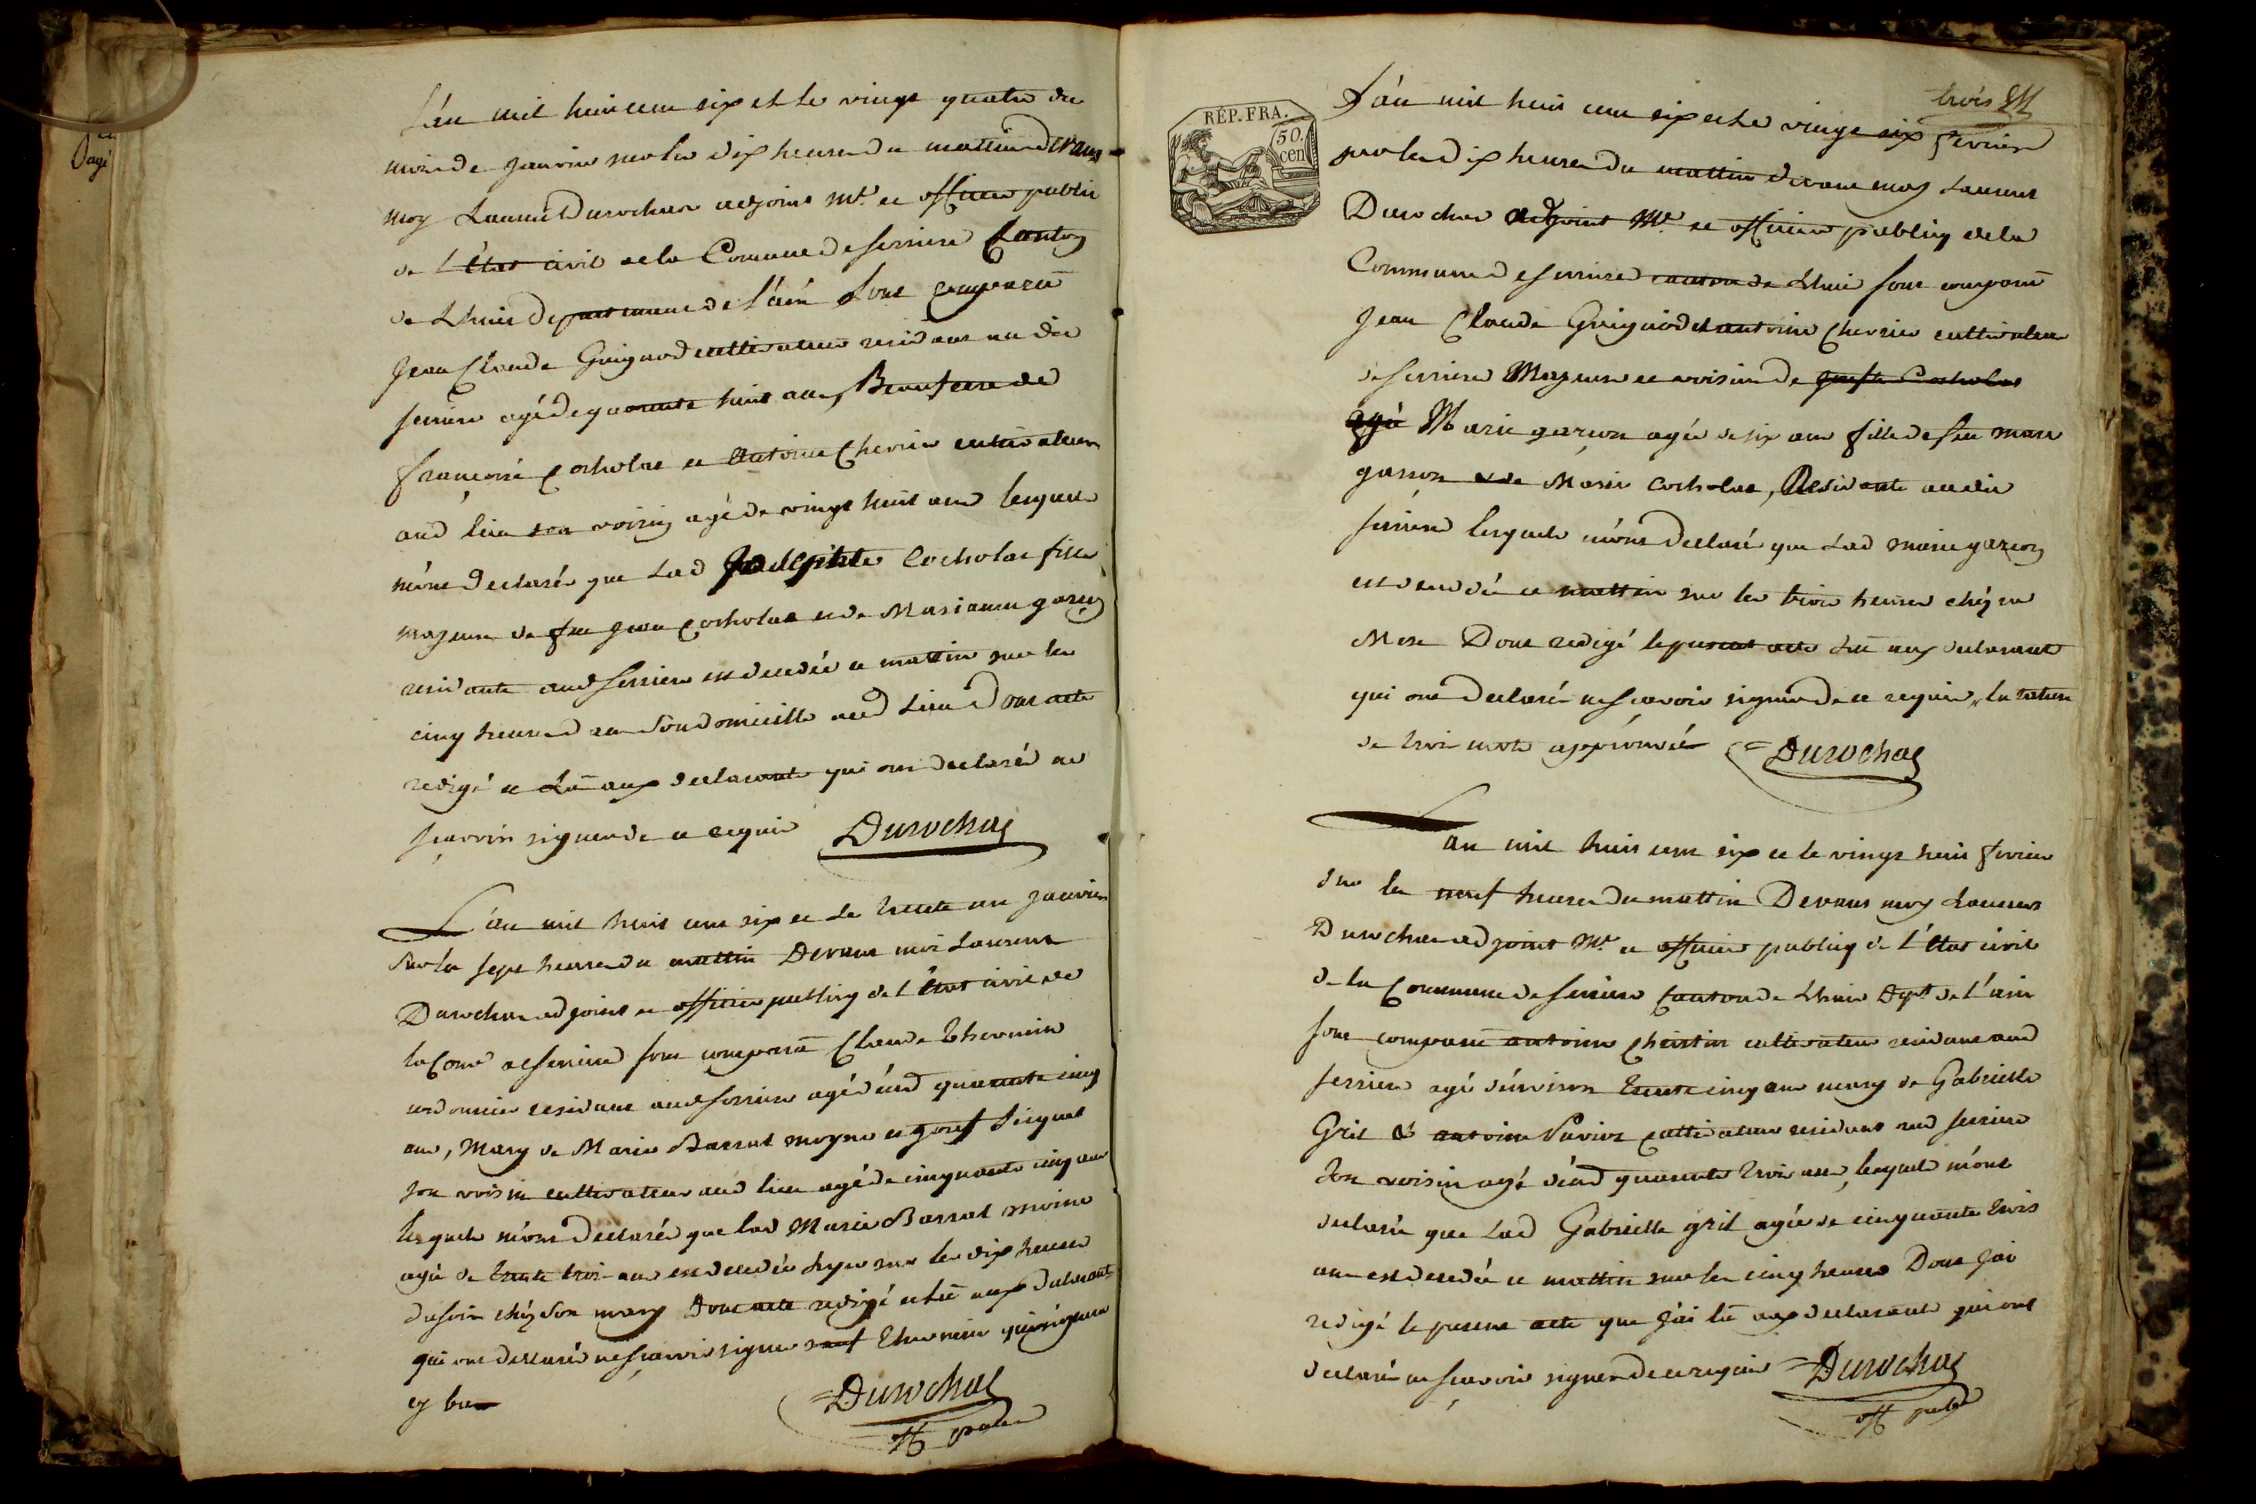 L'an mil huit cent six et le vingt quatre du
mois de janvier sur les dix heures du mattin devant
moy Laurent Durochat adjoint Mre et officier public
de l'état civil de la Commune de serriere Canton
de Lhuis departement de l'ain sont comparu
Jean Claude Guignod cultivateur residant au dit
serriere agé de quarante huit ans, Beaufrere de
françoise Cocholat et Antoine Chevrier cultivateur
aud lieu son voisin agé de vingt huit ans lesquels
m'ont declaré que lad Cocholat fille
majeure de feu jean Cocholat et de Marianne garçon
residante aud serriere est decedée ce mattin sur les
cinq heures en son domicille aud Lieu dont acte
redigé et Lû aux declarants qui ont declaré ne
sçavoir signer de ce requis Durochat
L'an mil huit cent six et le trente un janvier
sur les sept heures du mattin Devant moi Laurent
Durochat adjoint et officier publiq de l'état civil de
la Comne de serriere sont comparu Claude Thevenin
cordonnier residant aud serriere agé d'end quarante cinq
ans, Mary de Marie Barrat moyne et
son voisin cultivateur aud lieu agé de cinquante cinq ans
lesquels m'ont declaré que lad Marie Barrat moine
agée de trente trois ans est decedée hyer sur les dix heures
du soir chéz son mary Dont acte redigé et lû aux declarants
qui ont declaré ne sçavoir signer sauf Thevenin qui signera
ey bas
Durochat
off public
trois
RÉP. FRA.
50.
cen
L'an mil huit cent six et le vingt six fevrier
sur les dix heures du mattin devant moy Laurent
Durochat adjoint Mre et officier publiq de la
Commune de serriere canton de Lhuis sont comparu
Jean Claude Guignod et antoine Chevrier cultivateur
de serriere Majeurs et voisins de Cocholat
agé Marie garçon agée de six ans fille de feu marc
garson et de Marie Cocholat, Residante audit
serriere lesquels m'ont declaré que Lad marie garçon
est decedée ce mattin sur les trois heures chéz sa
Mere Dont redigé le present acte Lû aux declarants
qui ont declaré ne sçavoir signer de ce requis, la rature
de trois mots approuvée Durochat
L'an mil huit cent six et le vingt huit fevrier
sur les neuf heures du mattin Devant moy Laurent
Durochat adjoint Mre et officier publiq de l'état civil
de la Commune de serriere Canton de Lhuis Dept de l'ain
sont comparu antoine Christin cultivateur residant aud
serriere agé d'environ trente cinq ans mary de Gabrielle
Gril & antoine cultivateur residant aud serriere
son voisin agé d'end quarante trois ans, lesquels m'ont
declaré que Lad Gabrielle gril agée de cinquante trois
ans est decedée ce mattin sur les cinq heures Dont j'ai
redigé le present acte que j'ai lû aux declarants qui ont
declaré ne sçavoir signer de ce requis Durochat
off public